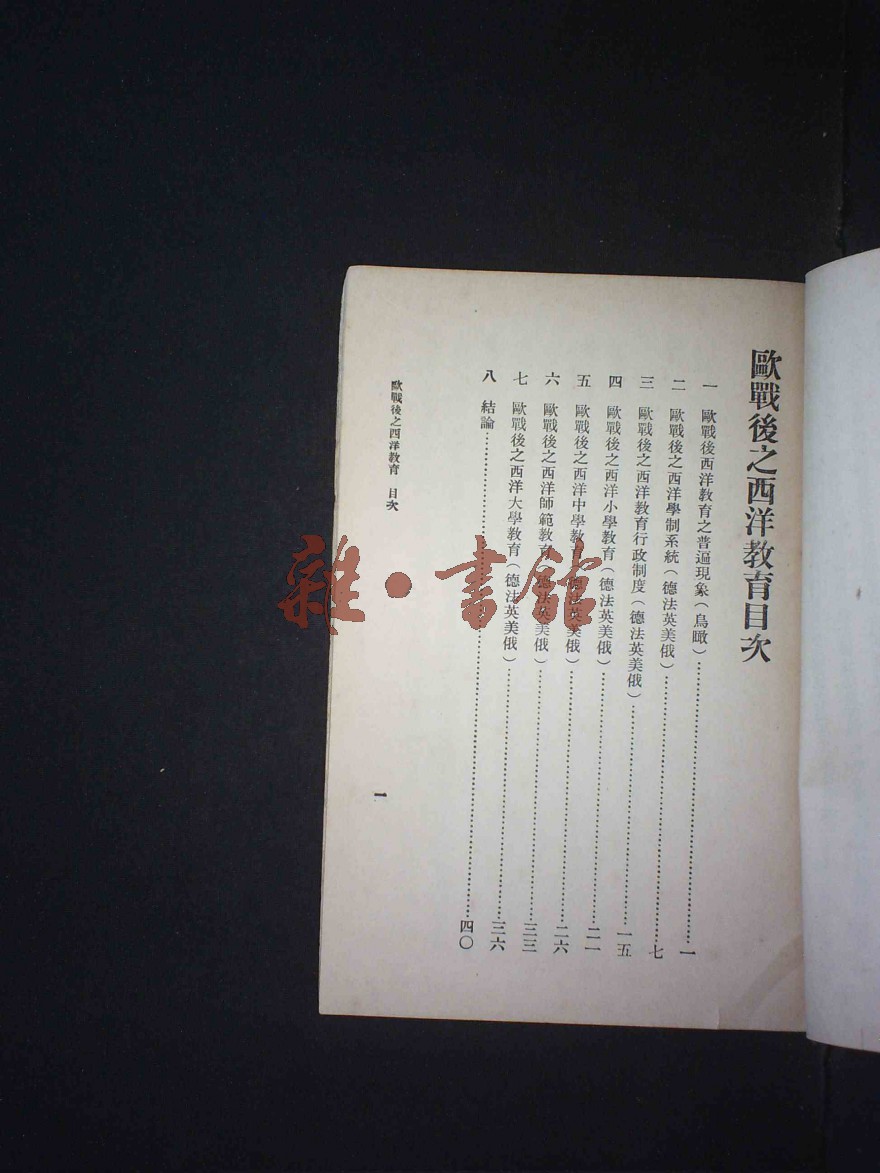 歐戰後之西洋教育目次
一 歐戰後西洋教育之普遍現象（鳥瞰）……一
二 歐戰後之西洋學制系統（德法英美俄）……七
三 歐戰後之西洋教育行政制度（德法英美俄）……一五
四 歐戰後之西洋小學教育（德法英美俄）……二一
五 歐戰後之西洋中學教育（德法英美俄）……二六
六 歐戰後之西洋師範教育（德法英美俄）……三三
七 歐戰後之西洋大學教育（德法英美俄）……三六
八 結論……四〇
歐戰後之西洋教育 目次
一
雜·書館